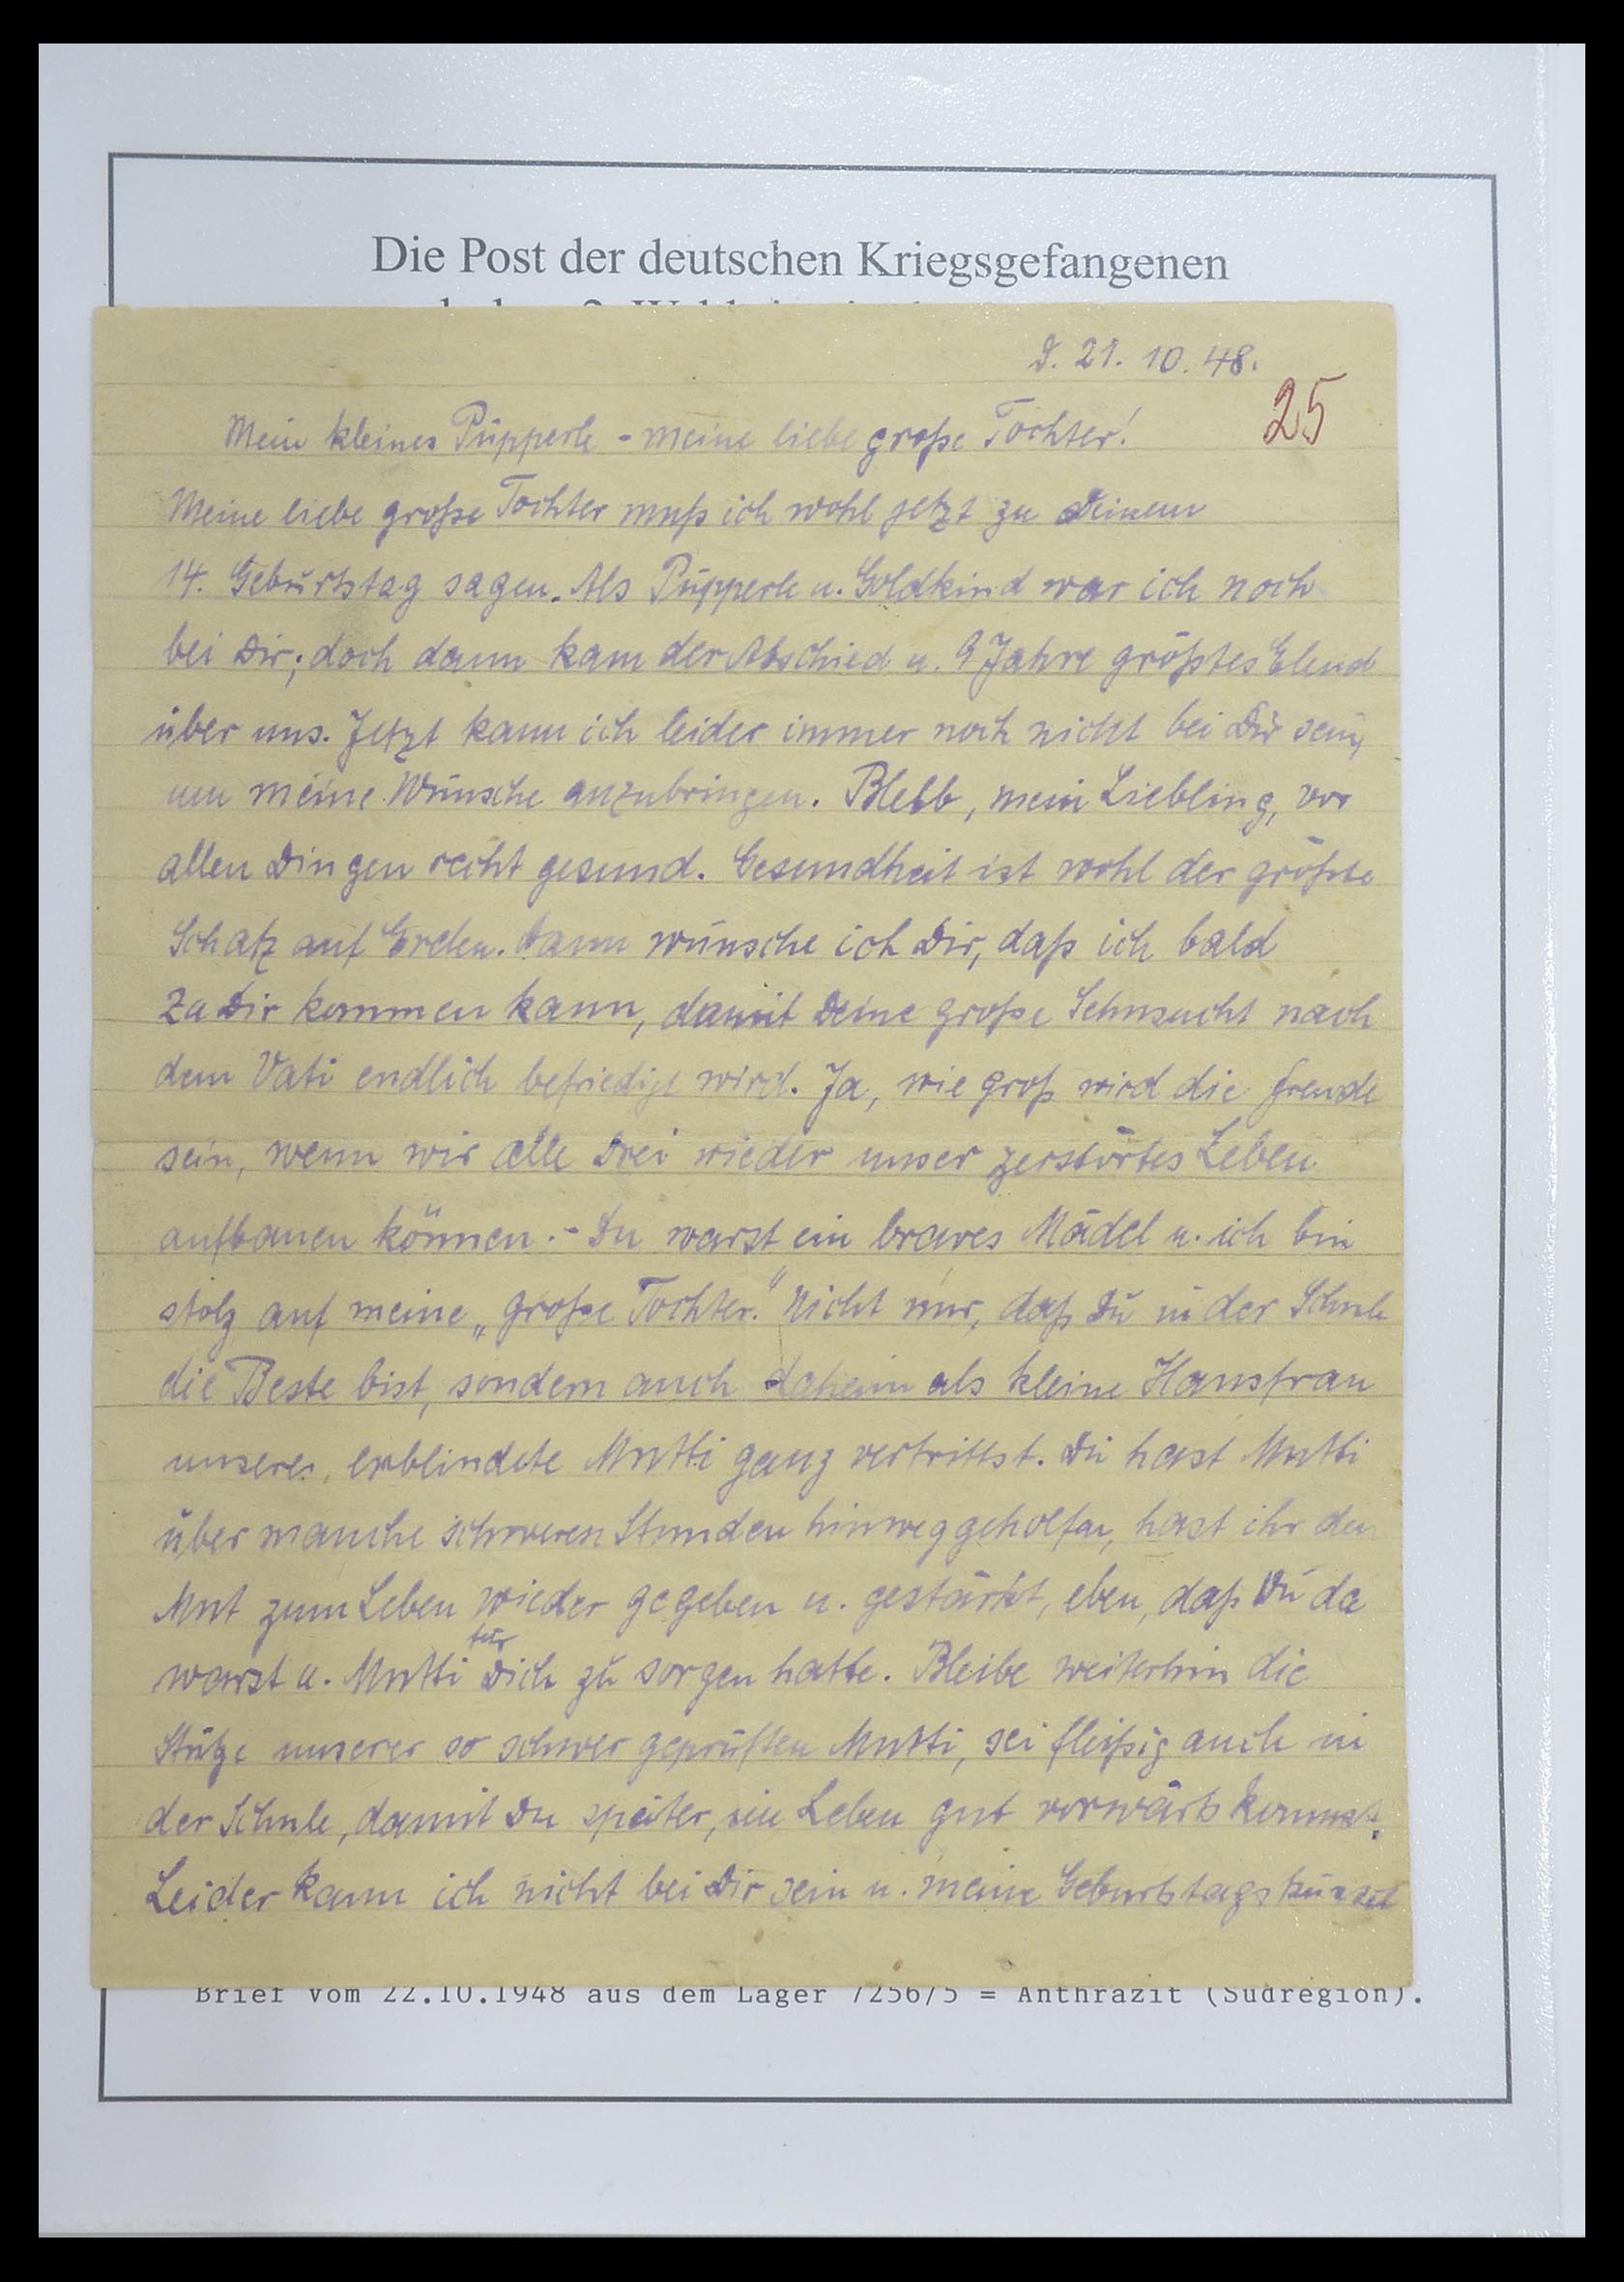 Die Post der deutschen Kriegsgefangenen
D. 21. 10. 48.
25
Mein kleines Püpperle - meine liebe große Tochter!
Meine liebe große Tochter muß ich wohl jetzt zu Deinem
14. Geburtstag sagen. Als Püpperle u. Goldkind war ich noch
bei Dir; doch dann kam der Abschied u. 9 Jahre größtes Elend
über uns. Jetzt kann ich leider immer noch nicht bei Dir sein,
um meine Wünsche anzubringen. Bleib, mein Liebling, vor
allen Dingen recht gesund. Gesundheit ist wohl der größte
Schatz auf Erden. Dann wünsche ich Dir, daß ich bald
zu Dir kommen kann, damit Deine große Sehnsucht nach
dem Vati endlich befriedigt wird. Ja, wie groß wird die Freude
sein, wenn wir alle Drei wieder unser zerstörtes Leben
aufbauen können. - Du warst ein braves Mädel u. ich bin
stolz auf meine „große Tochter." Nicht nur, daß Du in der Schule
die Beste bist, sondern auch daheim als kleine Hausfrau
unsere, erblindete Mutti ganz vertrittst. Du hast Mutti
über manche schweren Stunden hinweggeholfen, hast ihr den
Mut zum Leben wieder gegeben u. gestärkt, eben, daß Du da
warst u. Mutti für Dich zu sorgen hatte. Bleibe weiterhin die
Stütze unserer so schwer geprüften Mutti, sei fleißig auch in
der Schule, damit Du später, im Leben gut vorwärts kommst.
Leider kann ich nicht bei Dir sein u. meine
Brief vom 22.10.1948 aus dem Lager 7256/5 = Anthrazit (Südregion).